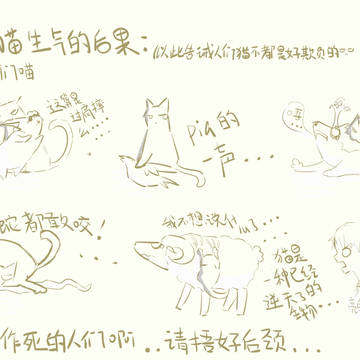 猫生气的后果：以此告诫人们猫不都是好欺负的。。
们喵
这算是
过肩摔
么...
pia的
一声...
蛇都敢咬！
我不想说什么了...
猫是
种已经
逆天了的
生物...
作死的人们啊..请捂好后颈...